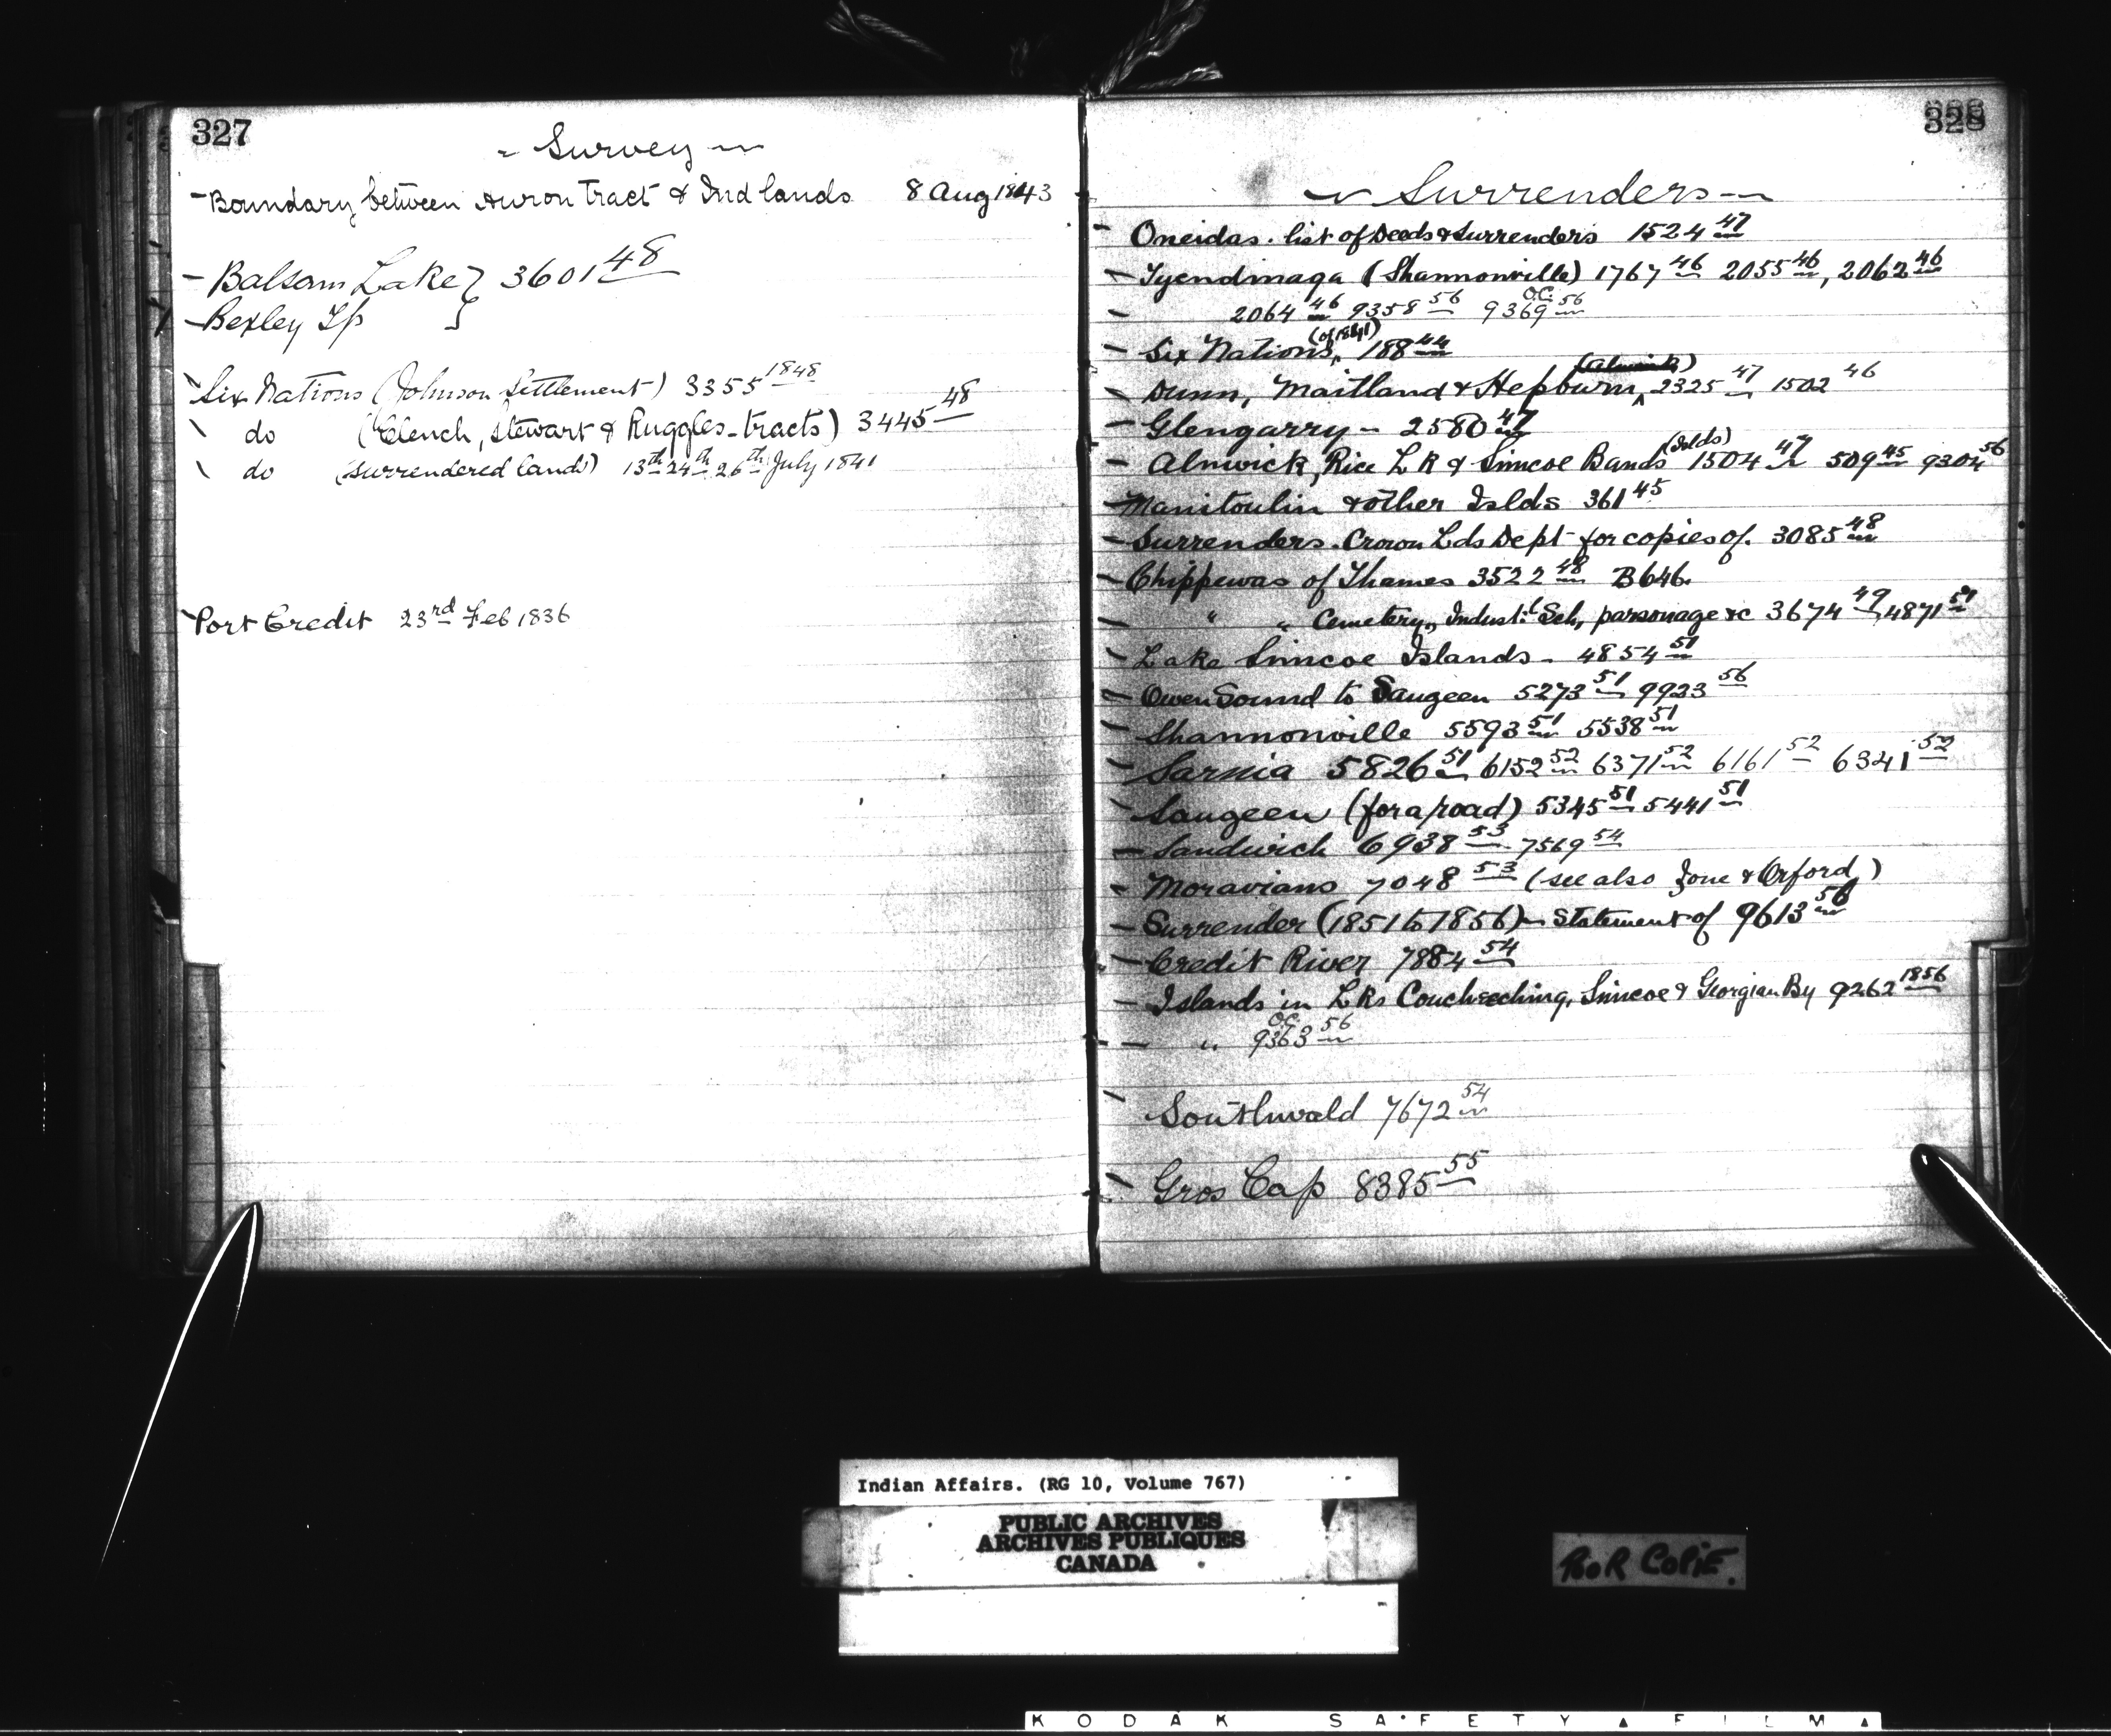 327
Survey
Boundary between Huron Tract & Ind lands 8 Aug 1843
Balsam Lake } 3601 48
Bexley Tp
Six Nations (Johnson Settlement) 3355 1848
do (Clench, Stewart & Ruggles tracts) 3445 48
do (Surrendered land) 13th 24th 26th July 1841
Port Credit 23rd Feb 1836
328
Surrenders
Oneidas. list of Deeds & Surrenders 1524 47
Tyendinaga (Shannonville) 1767 46 2055 46, 2062 46
2064 46 9358 56 O.C. 9369 56
Six Nations (of 1841) 188 44
Dunn, Maitland & Hepburn (Alnwick) 2325 47 1502 46
Glengarry - 2580 47
Alnwick, Rice LK & Simcoe Bands (Islds) 1504 47 509 45 9304 56
Manitoulin & other Islds 361 45
Surrenders. Crown Lds Dept for copies of. 3085 48
Chippewas of Thames 3522 48 B646.
" " Cemetery, Indust:l Sch, parsonage &c 3674 49, 4871 51
Lake Simcoe Islands - 4854 51
Owen Sound to Saugeen 5273 51 9923 56
Shannonville 5593 51 5538 51
Sarnia 5826 51 6152 52 6371 52 6161 52 6341 52
Saugeen (for a road) 5345 51 5441 51
Sandwich 6938 53 7569 54
Moravians 7048 53 (see also Zone & Orford)
Surrender (1851 to 1856) - Statement of 9613 56
Credit River 7884 54
Islands in Lks Couchiching, Simcoe & Georgian By 9262 1856
" O.C. 9363 56
Southwald 7672 54
Gros Cap 8385 55
Indian Affairs. (RG 10, Volume 767)
PUBLIC ARCHIVES
ARCHIVES PUBLIQUES
CANADA
POOR COPIE.
KODAK SAFETY FILM